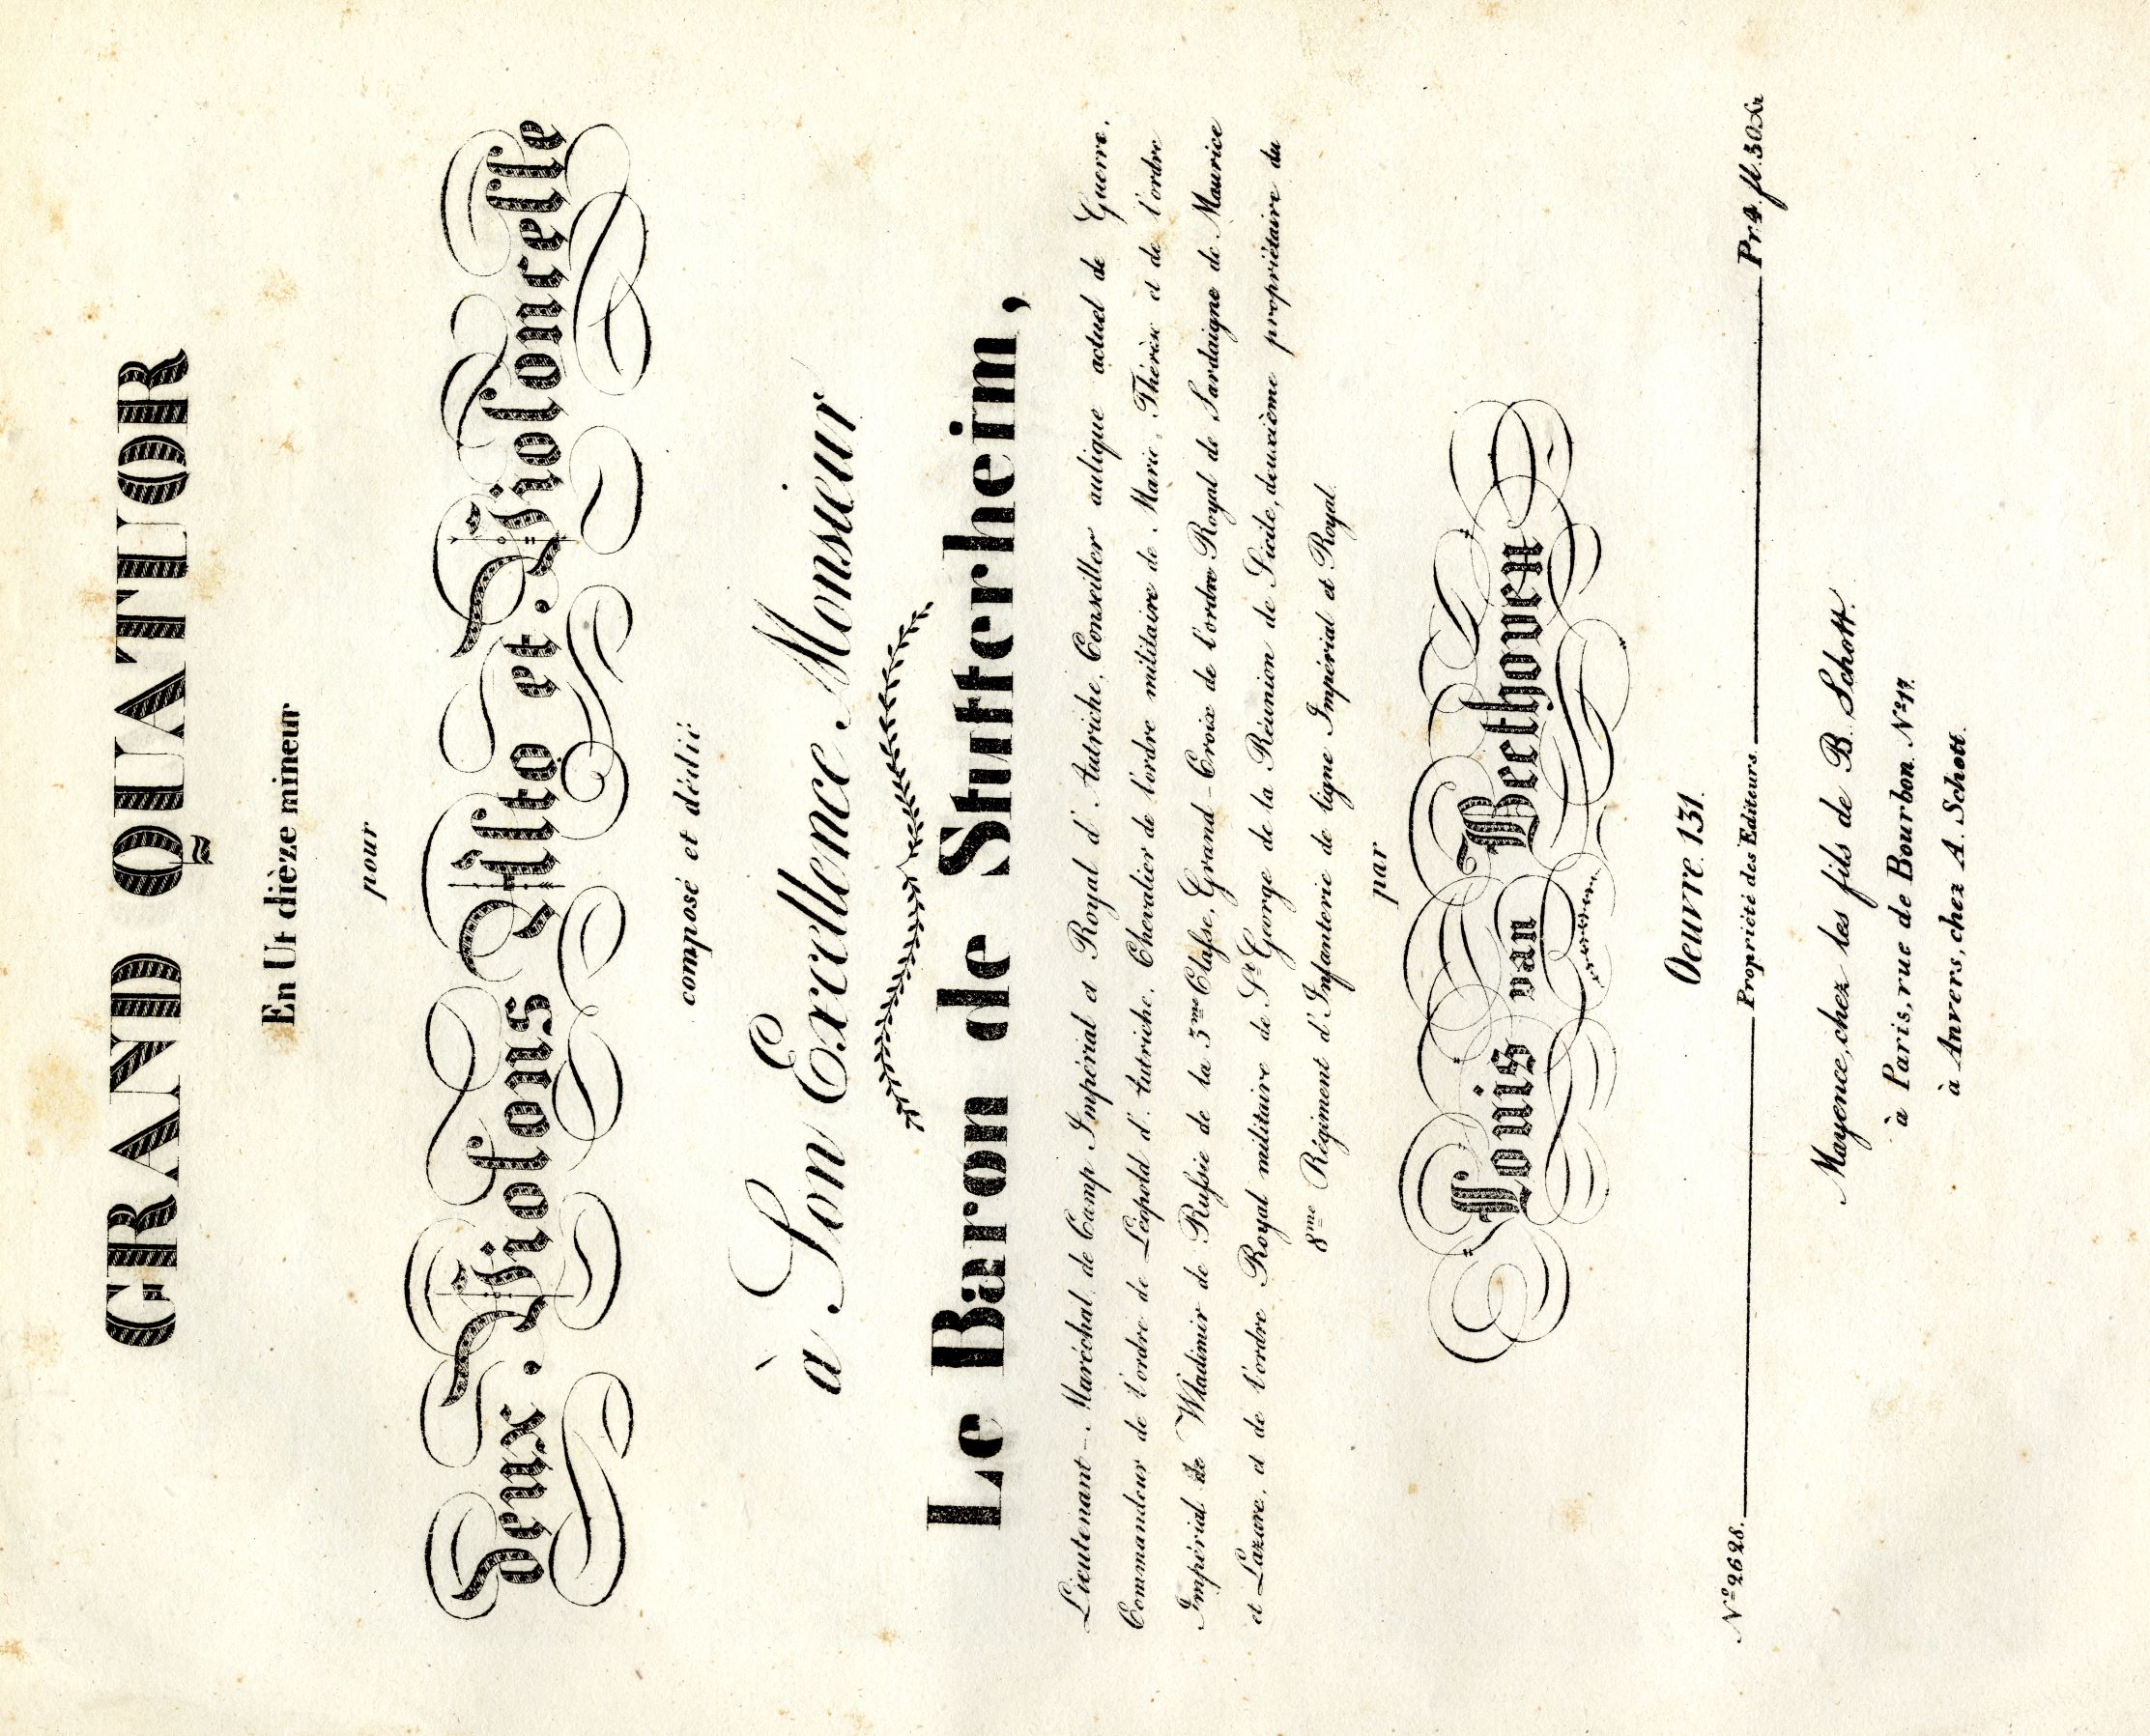 GRAND QUATUOR
En Ut dièze mineur
pour
Deux Violons Alto et Violoncelle
composé et dédié
à Son Excellence Monsieur
Le Baron de Stutterheim,
Lieutenant-Maréchal de Camp Impérial et Royal d'Autriche, Conseiller aulique actuel de Guerre,
Commandeur de l'ordre de Léopold d'Autriche, Chevalier de l'ordre militaire de Marie Thérèse et de l'ordre
Impérial de Wladimir de Russie de la 3me Classe, Grand-Croix de l'ordre Royal de Sardaigne de Maurice
et Lazare, et de l'ordre Royal militaire de St George de la Réunion de Sicile, deuxième propriétaire du
8me Régiment d'Infanterie de ligne Impérial et Royal
par
Louis van Beethoven
Oeuvre 131.
No 2628. Propriété des Editeurs. Pr. 4 fl. 30 Xr
Mayence, chez les fils de B. Schott.
à Paris, rue de Bourbon No 17.
à Anvers, chez A. Schott.